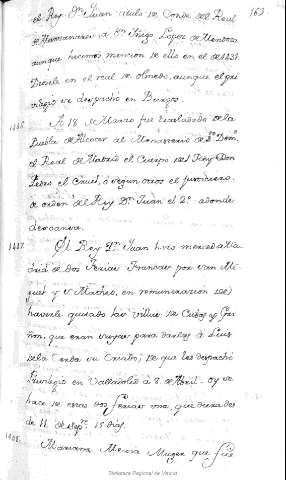 163
el Rey Dn. Juan titulo de Conde del Real
de Manzanares a Dn. Iñigo Lopez de Mendoza
aunque hicimos mencion de ello en el de 1431
Diosele en el real de olmedo, aunque el pri
vilegio se despachó en Burgos.
1446. A 18 de Marzo fue trasladado de la
Puebla de Alcocer al Monasterio de Sto. Domo.
el Real de Madrid el Cuerpo del Rey Don
Pedro el Cruel, ó segun otros el justiciero
de orden del Rey Dn. Juan el 2º. adonde
descansa.
1447. El Rey Dn. Juan hizo merced a Ma
drid de dos Ferias Francas por San Mi
guel y S. Matheo, en remuneracion de
haverle quitado las villas de Cubas y Gri
ñon, que eran suyas para darlas á Luis
de la Cerda su Criado; de que les despachó
Privilegio en Valladolid á 8 de Abril. oy se
hace de estas dos ferias una, que dura des
de 11 de Sepre. 15 dias.
Mariana Mexia Muger que fue
Biblioteca Regional de Madrid